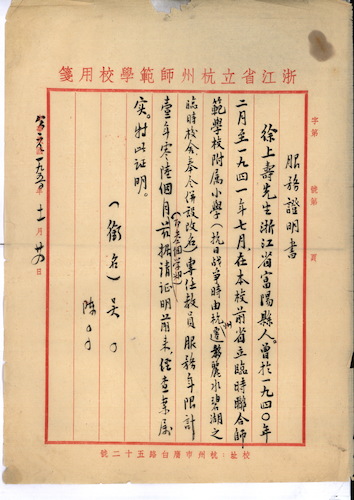 浙江省立杭州師範學校用箋
字第 號第 頁
服務證明書
徐上壽先生浙江省富陽縣人。曾於一九四〇年
二月至一九四一年七月,在本校前省立臨時聯合師
範學校附属小學(抗日战爭時由杭州遷麗水碧湖之
臨時校舍,奉令併設改名)專任教員服務年限計
壹年零陸個月(即叁個学期)。兹据請证明前来,经查案属
实。特此证明。
(銜名)吴
陈
公元一九五〇年十一月 日
校址:杭州市膺白路五十二號